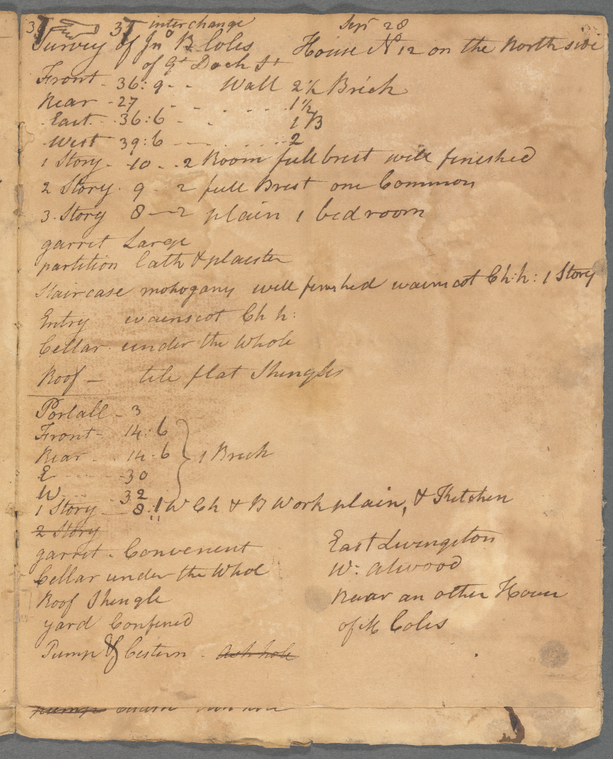 37 37 interchange Sepr 28
Survey of Jno B Coles House No 12 on the North side
of Gt Dock St
Front - 36:9 - - Wall 2½ Brick
Rear - 27 - - - - 1½
East - 36:6 - - - - 1⅓
West 39:6 - - - - 2
1 Story - 10 - 2 Room full brest well finished
2 Story - 9 - 2 full Brest one Common
3 Story 8 - 2 plain 1 bed room
garret Large
partition Lath & plaester
Staircase mohogany well finished wainscot Ch:h: 1 Story
Entry wainscot Ch h:
Cellar under the Whole
Roof - tile flat Shingles
Portall - 3
Front - 14:6
Rear - 14:6 } 1 Brick
E - 30
W - 32
1 Story - 8: 1 W Ch & B Work plain, & Kitchen
2 Story
garret - Convenient East Livingston
Cellar under the Whol W: alwood
Roof Shingle Rear an other House
yard Confined of M Coles
Pump & Cestern - Ash hole
pump